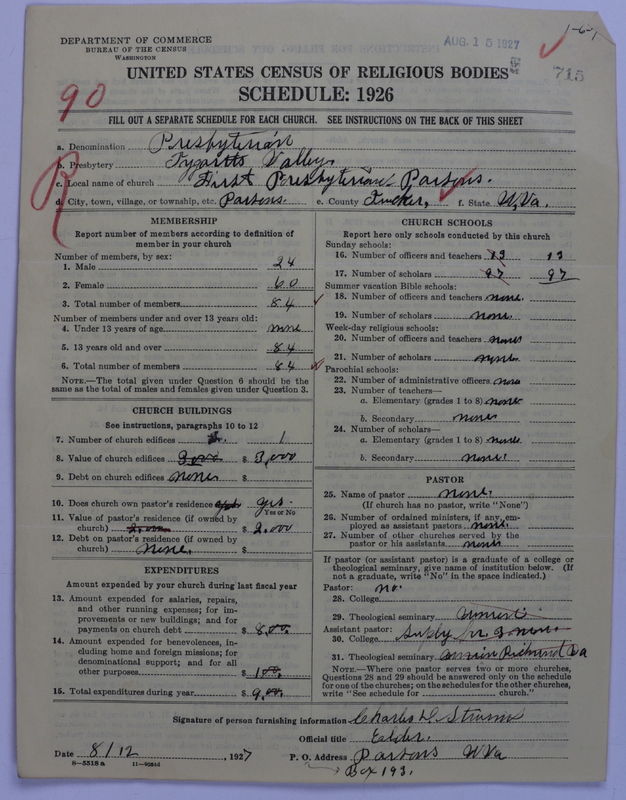 DEPARTMENT OF COMMERCE
BUREAU OF THE CENSUS
WASHINGTON
AUG 15 1927
1-6-1
715
UNITED STATES CENSUS OF RELIGIOUS BODIES
SCHEDULE: 1926
90
R
FILL OUT A SEPARATE SCHEDULE FOR EACH CHURCH. SEE INSTRUCTIONS ON THE BACK OF THIS SHEET
a. Denomination Presbyterian
b. Presbytery Tygarts Valley
c. Local name of church First Presbyterian Parsons.
d. City, town, village, or township, etc. Parsons. e. County Tucker, f. State W,Va.
MEMBERSHIP
Report number of members according to definition of
member in your church
Number of members, by sex:
1. Male 24
2. Female 60
3. Total number of members 84
Number of members under and over 13 years old:
4. Under 13 years of age none
5. 13 years old and over 84
6. Total number of members 84
NOTE.—The total given under Question 6 should be the
same as the total of males and females given under Question 3.
CHURCH BUILDINGS
See instructions, paragraphs 10 to 12
7. Number of church edifices 1
8. Value of church edifices $ 3,000
9. Debt on church edifices none $
10. Does church own pastor's residence yes.
Yes or No
11. Value of pastor's residence (if owned by
church) $ 2,000
12. Debt on pastor's residence (if owned by
church) none. $
EXPENDITURES
Amount expended by your church during last fiscal year
13. Amount expended for salaries, repairs,
and other running expenses; for im-
provements or new buildings; and for
payments on church debt $ 800.
14. Amount expended for benevolences, in-
cluding home and foreign missions; for
denominational support; and for all
other purposes $ 100.
15. Total expenditures during year $ 900.
CHURCH SCHOOLS
Report here only schools conducted by this church
Sunday schools:
16. Number of officers and teachers 13 13
17. Number of scholars 97 97
Summer vacation Bible schools:
18. Number of officers and teachers none.
19. Number of scholars none.
Week-day religious schools:
20. Number of officers and teachers none
21. Number of scholars none.
Parochial schools:
22. Number of administrative officers none
23. Number of teachers—
a. Elementary (grades 1 to 8) none
b. Secondary none
24. Number of scholars—
a. Elementary (grades 1 to 8) none.
b. Secondary none.
PASTOR
25. Name of pastor none.
(If church has no pastor, write "None")
26. Number of ordained ministers, if any, em-
ployed as assistant pastors none.
27. Number of other churches served by the
pastor or his assistants none
If pastor (or assistant pastor) is a graduate of a college or
theological seminary, give name of institution below. (If
not a graduate, write "No" in the space indicated.)
Pastor: no.
28. College
29. Theological seminary
Assistant pastor:
30. College Supply
31. Theological seminary Richmond Va
NOTE.—Where one pastor serves two or more churches,
Questions 28 and 29 should be answered only on the schedule
for one of the churches; on the schedules for the other churches,
write "See schedule for church."
Signature of person furnishing information Charles D
Official title Elder.
Date 8/12, 1927 P. O. Address Parsons W Va
Box 193.
8-5518a 11-90646